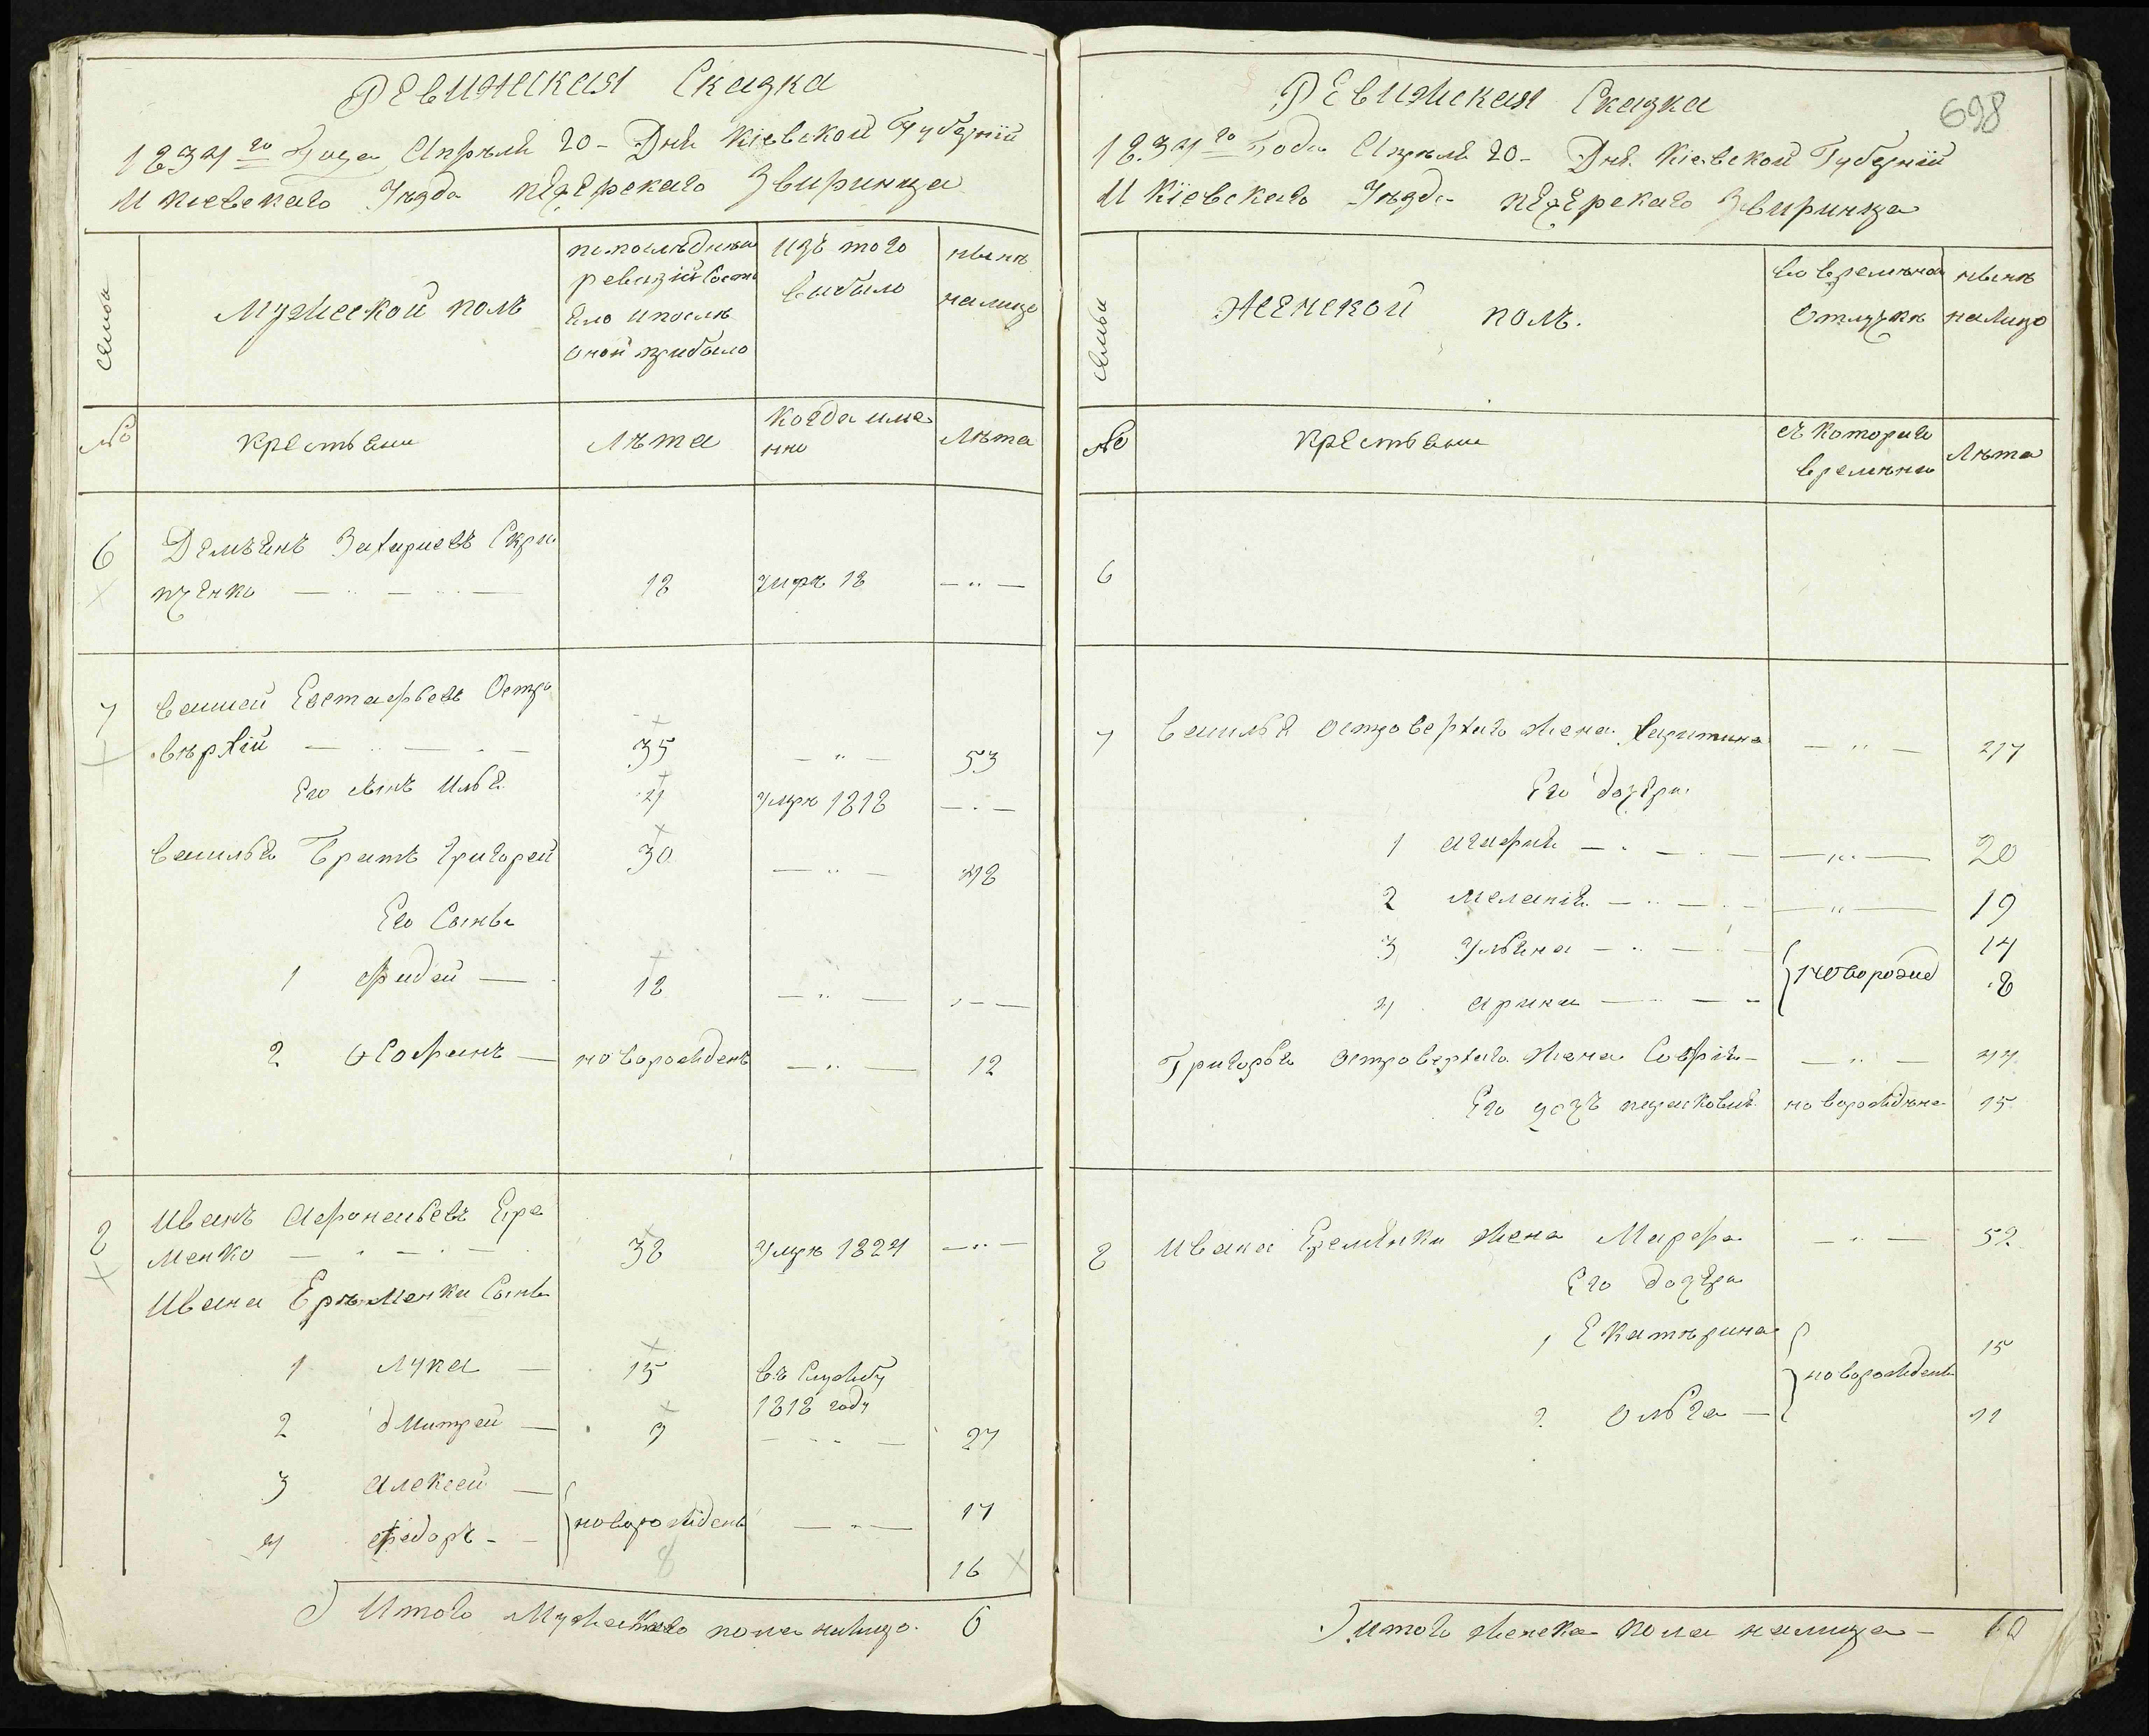 Ревижская Сказка
1834го Года Апреля 20 - Дня Кіевской Губерніи
И Кіевскаго Уезда печерскаго Звиринца
семьи
Мужеской полъ
по последней
ревизіи состо
яло и после
оной прибыло
изъ того
выбыло
ныне
налицо
№
крестьяни
Лета
Когда име
нно
Лета
6
Демьянъ Захариевъ Скри
пченко — „ — „ —
18
умре 18
— „ —
7
Василей Евстафьевъ Остро
верхій — „ — „ —
35
— „ —
53
Его сынъ Илья
4
умре 1818
— „ —
Василья Братъ Григорей
30
— „ —
48
Его Сынвя
1 Фадей —
18
— „ —
— „ —
2 Софонъ —
новорожденъ
— „ —
12
8
Иванъ Афонасьевъ Ере
менко — „ — „ —
38
умре 1824
— „ —
Ивана Еременка Сынвя
1 Лука —
15
въ Службу
1818 году
2 дмитрей —
9
— „ —
27
3 Алексей —
новорожденъ
— „ —
17
4 Федоръ —
16
8
Итого Мужескаго пола налицо.
6
Ревижская Сказка
698
1834го Года Апреля 20 - Дня Кіевской Губерніи
И Кіевскаго Уезда печерскаго Звиринца
семьи
Женской полъ.
во временной
Отлучке
ныне
налицо
№
крестьяни
съ котораго
времени
Лета
6
7
Василья островерхаго жена Харитина
— „ —
47
Его дочери
1 агафия — „ —
— „ —
20
2 меланія — „ —
— „ —
19
3 Ульяна — „ —
новорожд
14
4 арина — „ —
8
Григорья островерхаго жена Софія —
— „ —
44
Его дочь парасковия
новорождена
15
8
Ивана Еременки жена Марфа
— „ —
52
Его дочера
1 Екатерина
новорождены
15
2 ольга —
11
Итого женска пола налицо —
10